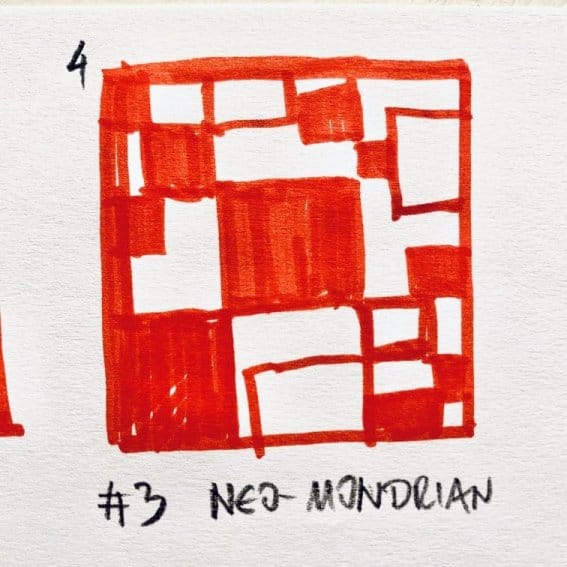 4
#3 NEO-MONDRIAN